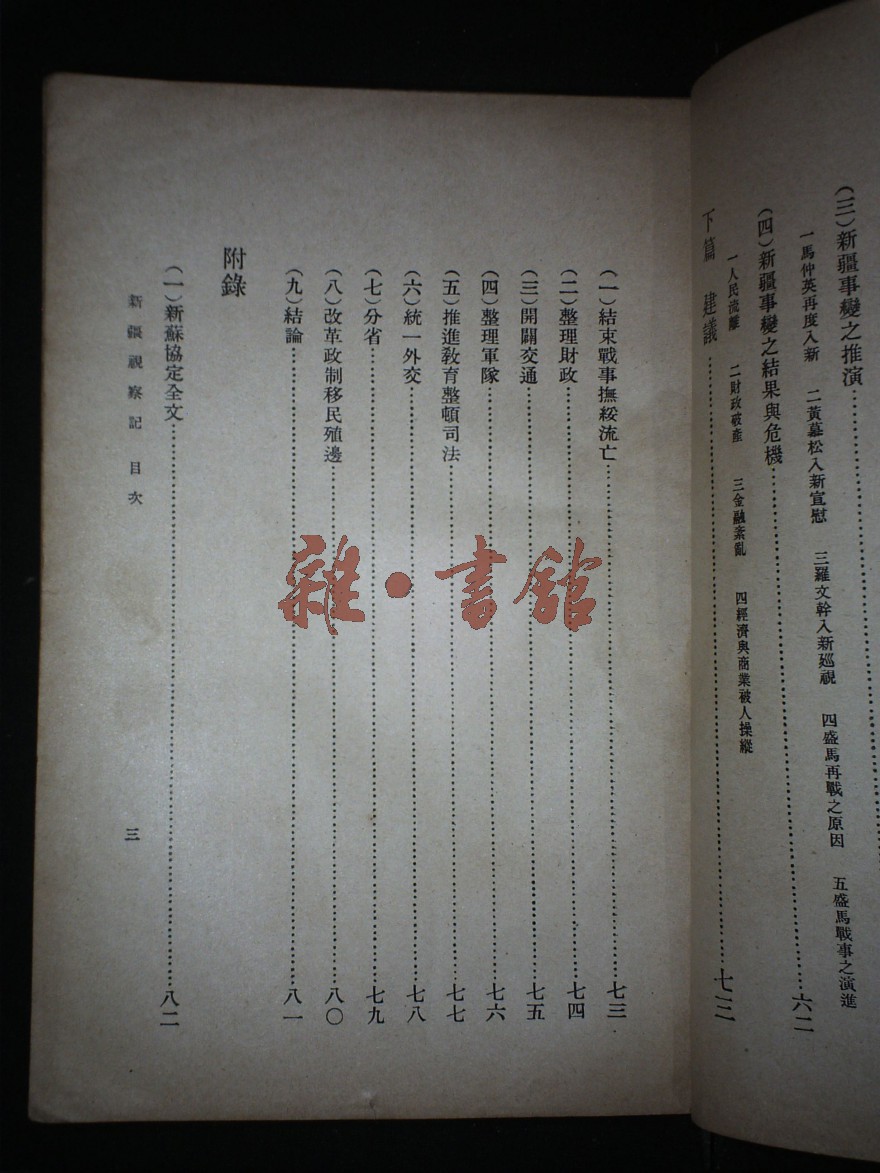 (三)新疆事變之推演
一馬仲英再度入新 二黃慕松入新宣慰 三羅文幹入新巡視 四盛馬再戰之原因 五盛馬戰事之演進
(四)新疆事變之結果與危機……六二
一人民流離 二財政破產 三金融紊亂 四經濟與商業被人操縱
下篇 建議……七三
(一)結束戰事撫綏流亡……七三
(二)整理財政……七四
(三)開闢交通……七五
(四)整理軍隊……七六
(五)推進教育整頓司法……七七
(六)統一外交……七八
(七)分省……七九
(八)改革政制移民殖邊……八〇
(九)結論……八一
附錄
(一)新蘇協定全文……八二
新疆視察記 目次 三
雜·書館